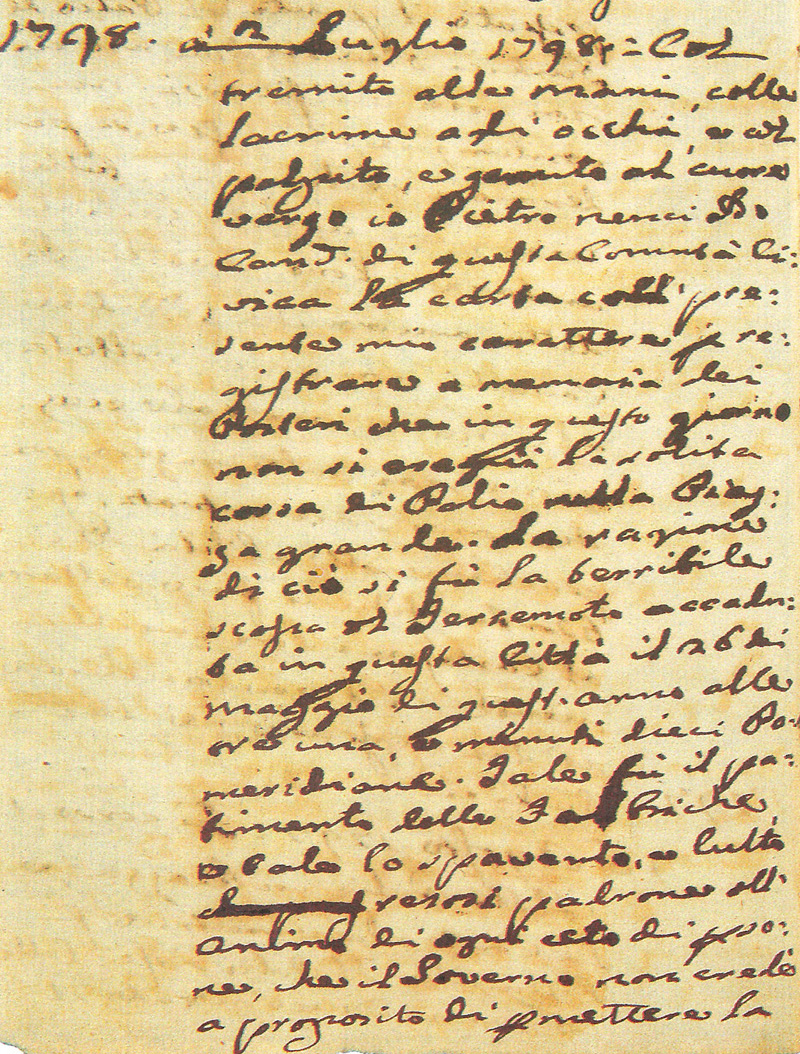 1798. a 2 Luglio 1798 = Col
tremito alle mani, colle
lacrime agli occhi, e col
palpito, e gemito al cuore
vergo io Pietro Nenci
Canc.re di questa Comunità Ci=
vica la carta coll' pre=
sente mio carattere p re=
gistrare a memoria dei
Posteri che in questo giorno
non si eseguì la solita
corsa di Palio nella Piaz=
za grande. La ragione
di ciò si fù la terribile
scossa di Terremoto accadu=
ta in questa Città il 26 di
maggio di quest. anno alle
ore una, e minuti dieci Po=
meridiane. Tale fù il pa=
timento delle Fabbriche,
e tale lo spavento, e lutto
resosi padrone dell'
animo di ogni ceto di pso=
ne, che il Governo non credè
a proposito di pmettere la